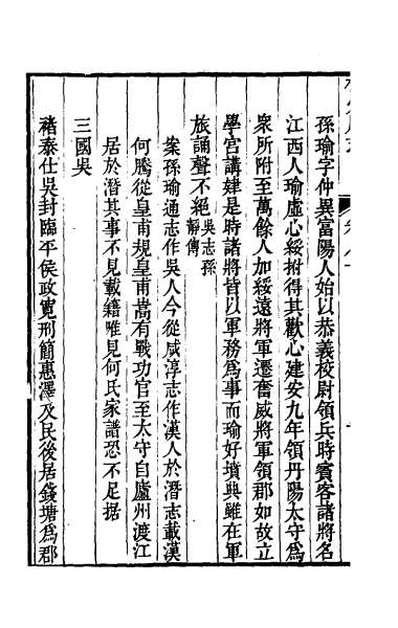 孫瑜字仲異富陽人始以恭義校尉領兵時賓客諸將名
江西人瑜虛心綏拊得其歡心建安九年領丹陽太守爲
衆所附至萬餘人加綏遠將軍遷奮威將軍領郡如故立
學宮講肄是時諸將皆以軍務爲事而瑜好墳典雖在軍
旅誦聲不絕吳志孫靜傳
案孫瑜通志作吳人今從咸淳志作漢人於潛志載漢
何騰從皇甫規皇甫嵩有戰功官至太守自廬州渡江
居於潛其事不見載籍唯見何氏家譜恐不足据
三國吳
褚泰仕吳封臨平侯政寬刑簡惠澤及民後居錢塘爲郡